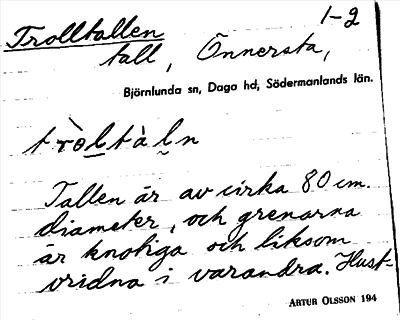 Trolltallen 1-2
tall, Önnersta,
Björnlunda sn, Daga hd, Södermanlands län.
tròltàln
Tallen är av cirka 80 cm.
diameter, och grenarna
är knotiga och liksom
vridna i varandra. Hust-
ARTUR OLSSON 194